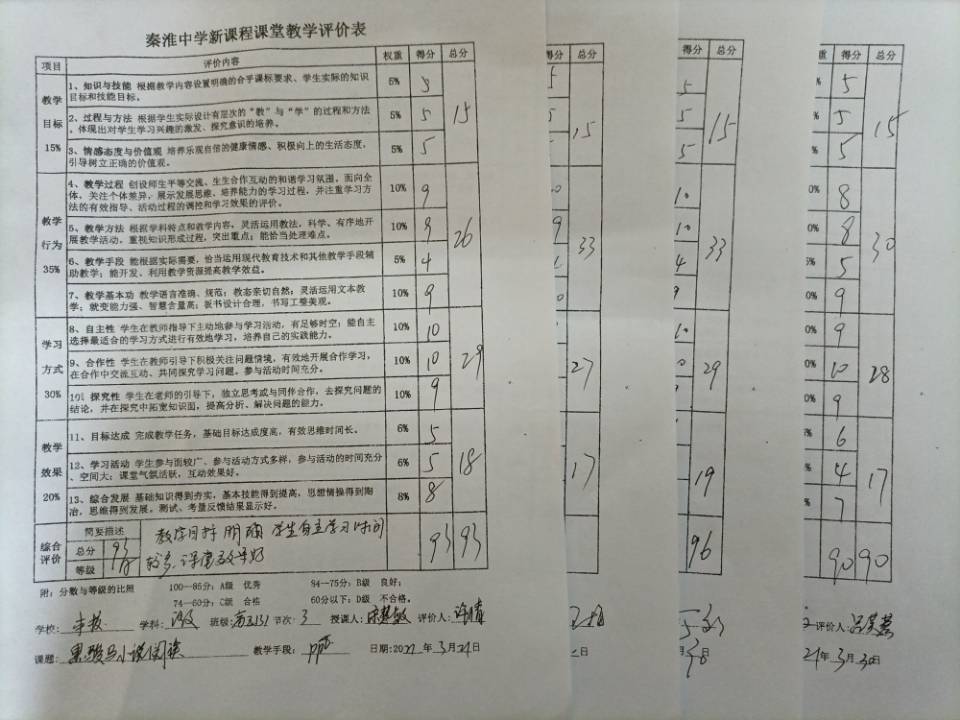 秦淮中学新课程课堂教学评价表
项目 评价内容 权重 得分 总分
教学目标 15%
1、知识与技能 根据教学内容设置明确的合乎课标要求、学生实际的知识
目标和技能目标。 5% 5
2、过程与方法 根据学生实际设计有层次的“教”与“学”的过程和方法
，体现出对学生学习兴趣的激发、探究意识的培养。 5% 5 15
3、情感态度与价值观 培养乐观自信的健康情感、积极向上的生活态度，
引导树立正确的价值观。 5% 5
教学行为 35%
4、教学过程 创设师生平等交流、生生合作互动的和谐学习氛围，面向全
体，关注个体差异，展示发展思维、培养能力的学习过程，并注重学习方
法的有效指导、活动过程的调控和学习效果的评价。 10% 9
5、教学方法 根据学科特点和教学内容，灵活运用教法，科学、有序地开
展教学活动，重视知识形成过程，突出重点；能恰当处理难点。 10% 9 26
6、教学手段 能根据实际需要，恰当运用现代教育技术和其他教学手段辅
助教学；能开发、利用教学资源提高教学效益。 5% 4
7、教学基本功 教学语言准确、规范；教态亲切自然；灵活运用文本教
学；就变能力强、智慧含量高；板书设计合理，书写工整美观。 10% 9
学习方式 30%
8、自主性 学生在教师指导下主动地参与学习活动，有足够时空；能自主
选择最适合的学习方式进行有效地学习，培养自己的实践能力。 10% 10
9、合作性 学生在教师引导下积极关注问题情境，有效地开展合作学习，
在合作中交流互动、共同探究学习问题。参与活动时间充分。 10% 10 29
10、探究性 学生在老师的引导下，独立思考或与同伴合作，去探究问题的
结论，并在探究中拓宽知识面，提高分析、解决问题的能力。 10% 9
教学效果 20%
11、目标达成 完成教学任务，基础目标达成度高，有效思维时间长。 6% 5
12、学习活动 学生参与面较广、参与活动方式多样，参与活动的时间充分
、空间大；课堂气氛活跃，互动效果好。 6% 5 18
13、综合发展 基础知识得到夯实，基本技能得到提高，思想情操得到陶
冶，思维得到发展。测试、考量反馈结果显示好。 8% 8
综合评价 简要描述 教学目标明确 学生自主学习时间
总分 93 93 93
等级 A
附：分数与等级的比照 100—85分：A级 优秀 84—75分：B级 良好；
74—60分：C级 合格 60分以下：D级 不合格。
学校： 本校 学科： 班级： 节次： 3 授课人： 评价人： 许晴
课题： 黑骏马小说阅读 教学手段： ppt 日期：2021年3月29日
5
5
15
9
33
27
17
得分 总分
5
5 15
5
10
10
4 33
9
10
29
19
96
得分 总分
5
5 15
5
8
8
5 30
9
9
10 28
9
6
4 17
7
90 90
评价人：
21年3月30日